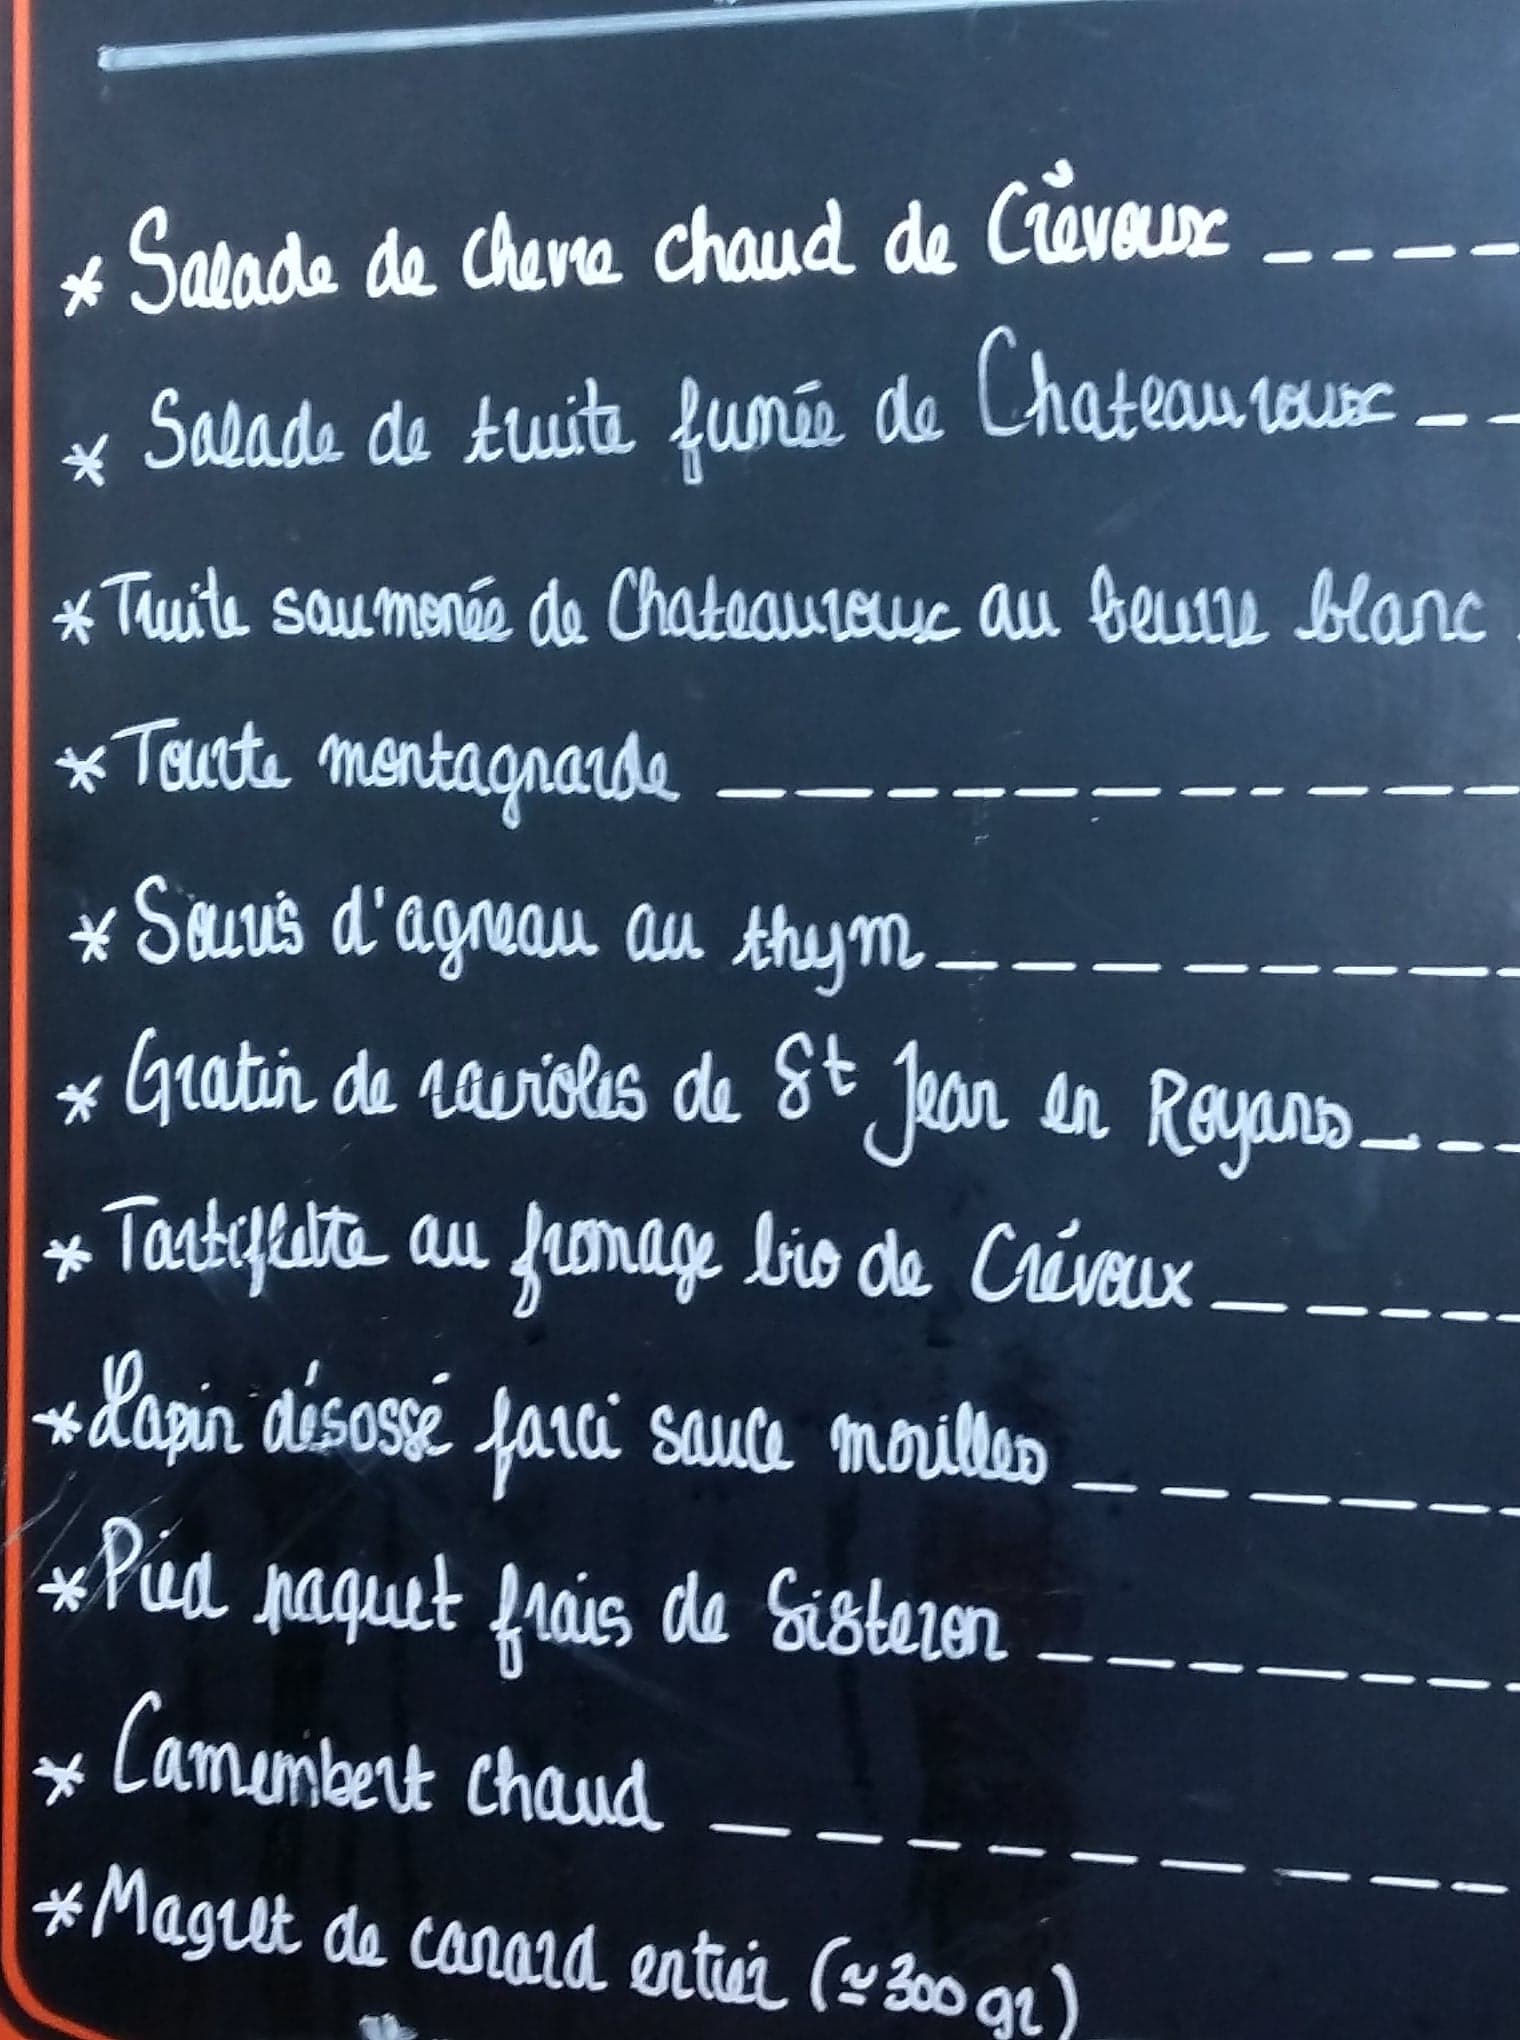 * Salade de chevre chaud de Crévoux ----
* Salade de truite fumée de Chateauroux --
* Truite saumonée de Chateauroux au beurre blanc
* Tourte montagnarde ----------
* Souris d'agneau au thym -------
* Gratin de ravioles de St Jean en Royans ---
* Tartiflette au fromage bio de Crévoux ----
* Lapin désossé farci sauce morilles -----
* Pied paquet frais de Sisteron ------
* Camembert chaud --------
* Magret de canard entier (≃300 gr)